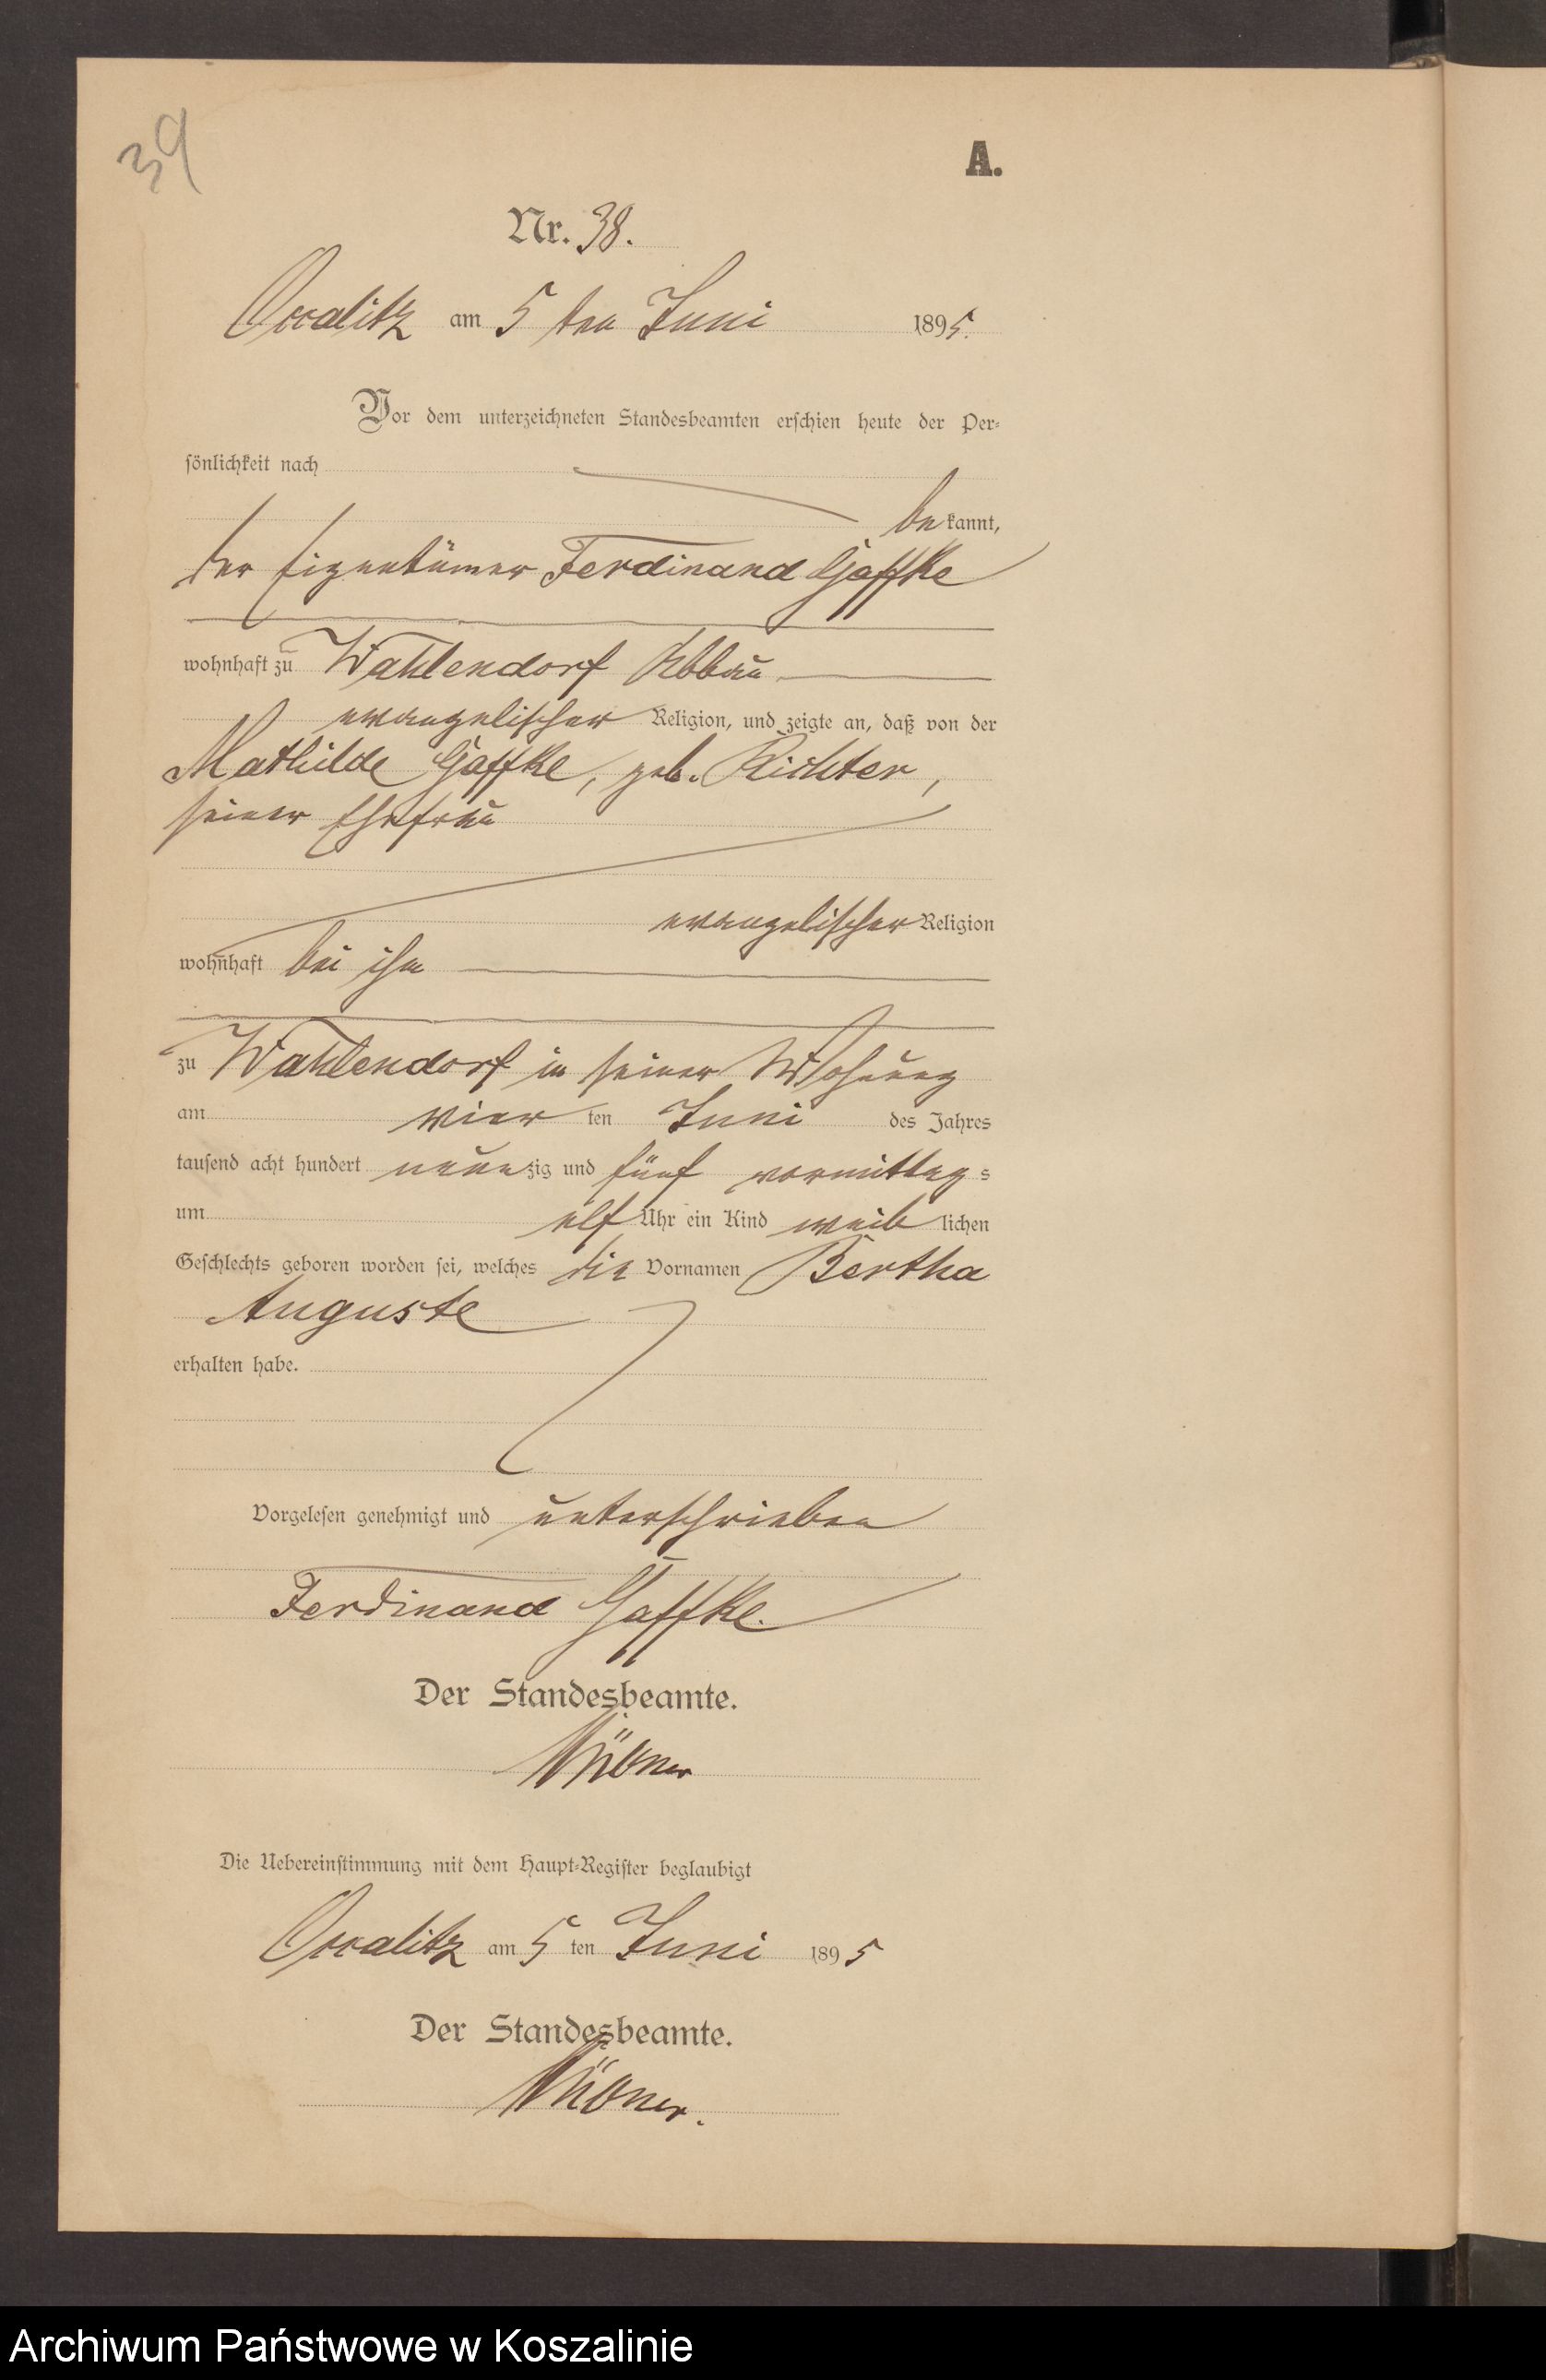 39
A.
Nr. 38.
Occalitz am 5 ten Juni 1895.
Vor dem unterzeichneten Standesbeamten erschien heute der Per-
sönlichkeit nach
bekannt,
der Eigentümer Ferdinand Gaffke
wohnhaft zu Wahlendorf Abbau
evangelischer Religion, und zeigte an, daß von der
Mathilde Gaffke, geb. Richter,
seiner Ehefrau
evangelischer Religion
wohnhaft bei ihm
zu Wahlendorf in seiner Wohnung
am vier ten Juni des Jahres
tausend acht hundert neunzig und fünf vormittags
um elf Uhr ein Kind weiblichen
Geschlechts geboren worden sei, welches die Vornamen Bertha
Auguste
erhalten habe.
Vorgelesen genehmigt und unterschrieben
Ferdinand Gaffke.
Der Standesbeamte.
Die Uebereinstimmung mit dem Haupt-Register beglaubigt
Occalitz am 5 ten Juni 1895
Der Standesbeamte.
Archiwum Państwowe w Koszalinie